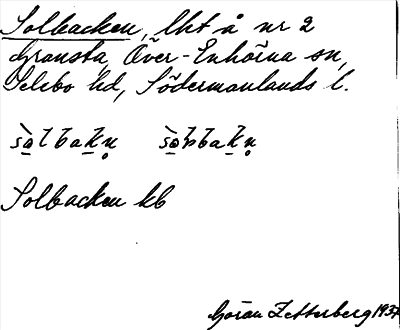 Solbacken, lht å nr 2
Gransta, Över-Enhörna sn,
Selebo hd, Södermanlands l.
Solbacken kb
Göran Zetterberg 1937